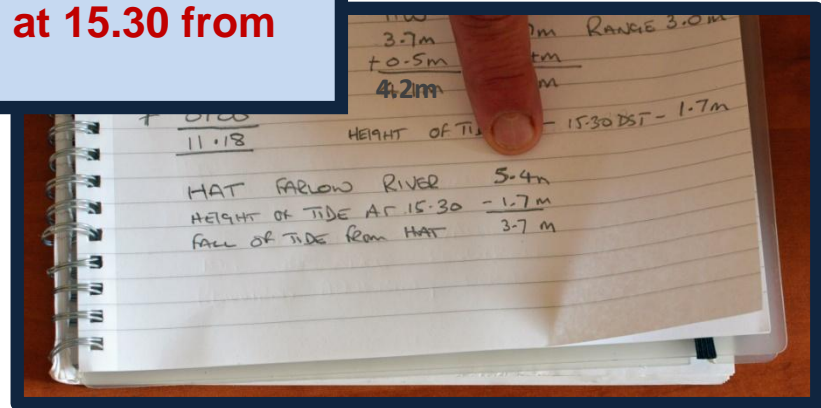 at 15.30 from
3.7m RANGE 3.0m
+0.5m
4.2m
11.18
HEIGHT OF 15.30 DST - 1.7m
HAT FARLOW RIVER 5.4m
HEIGHT OF TIDE AT 15.30 - 1.7 m
FALL OF TIDE from HAT 3.7 m